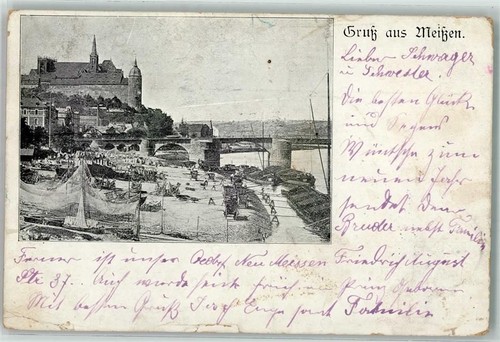 Gruß aus Meißen.
Lieber Schwager
u Schwester.
Die besten Glück
und Segens
Wünsche zum
neuen Jahr
sendet dein
Bruder nebst Familie
Ferner ist unser Neu Meissen Friedrich August
Str 37. Auch wurde
Mit besten Gruß samt Familie